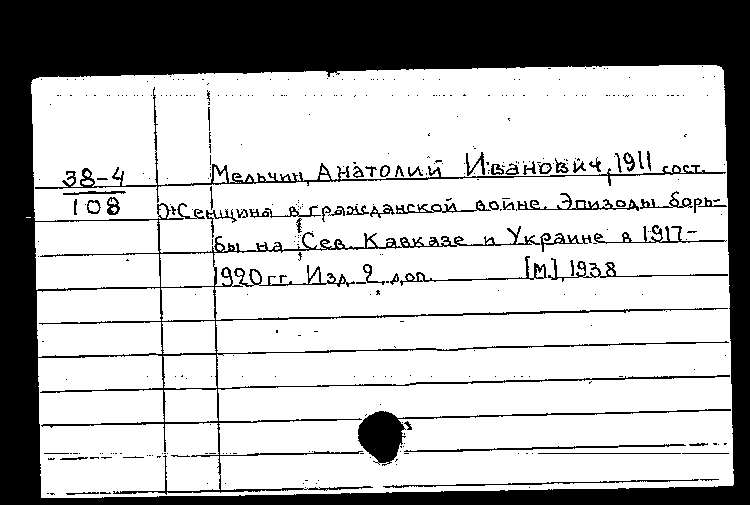 38-4
108
Мельчин, Анатолий Иванович, 1911 сост.
Женщина в гражданской войне. Эпизоды борь-
бы на Сев. Кавказе и Украине в 1917-
1920 гг. Изд. 2, доп. [М.], 1938